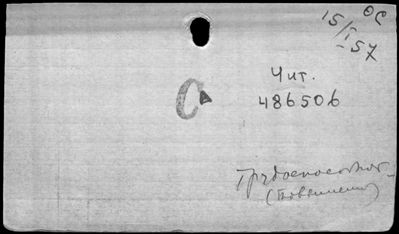 ОС
15/I 57
С
Чит.
486506
Трудоспособност-
(Повышение)